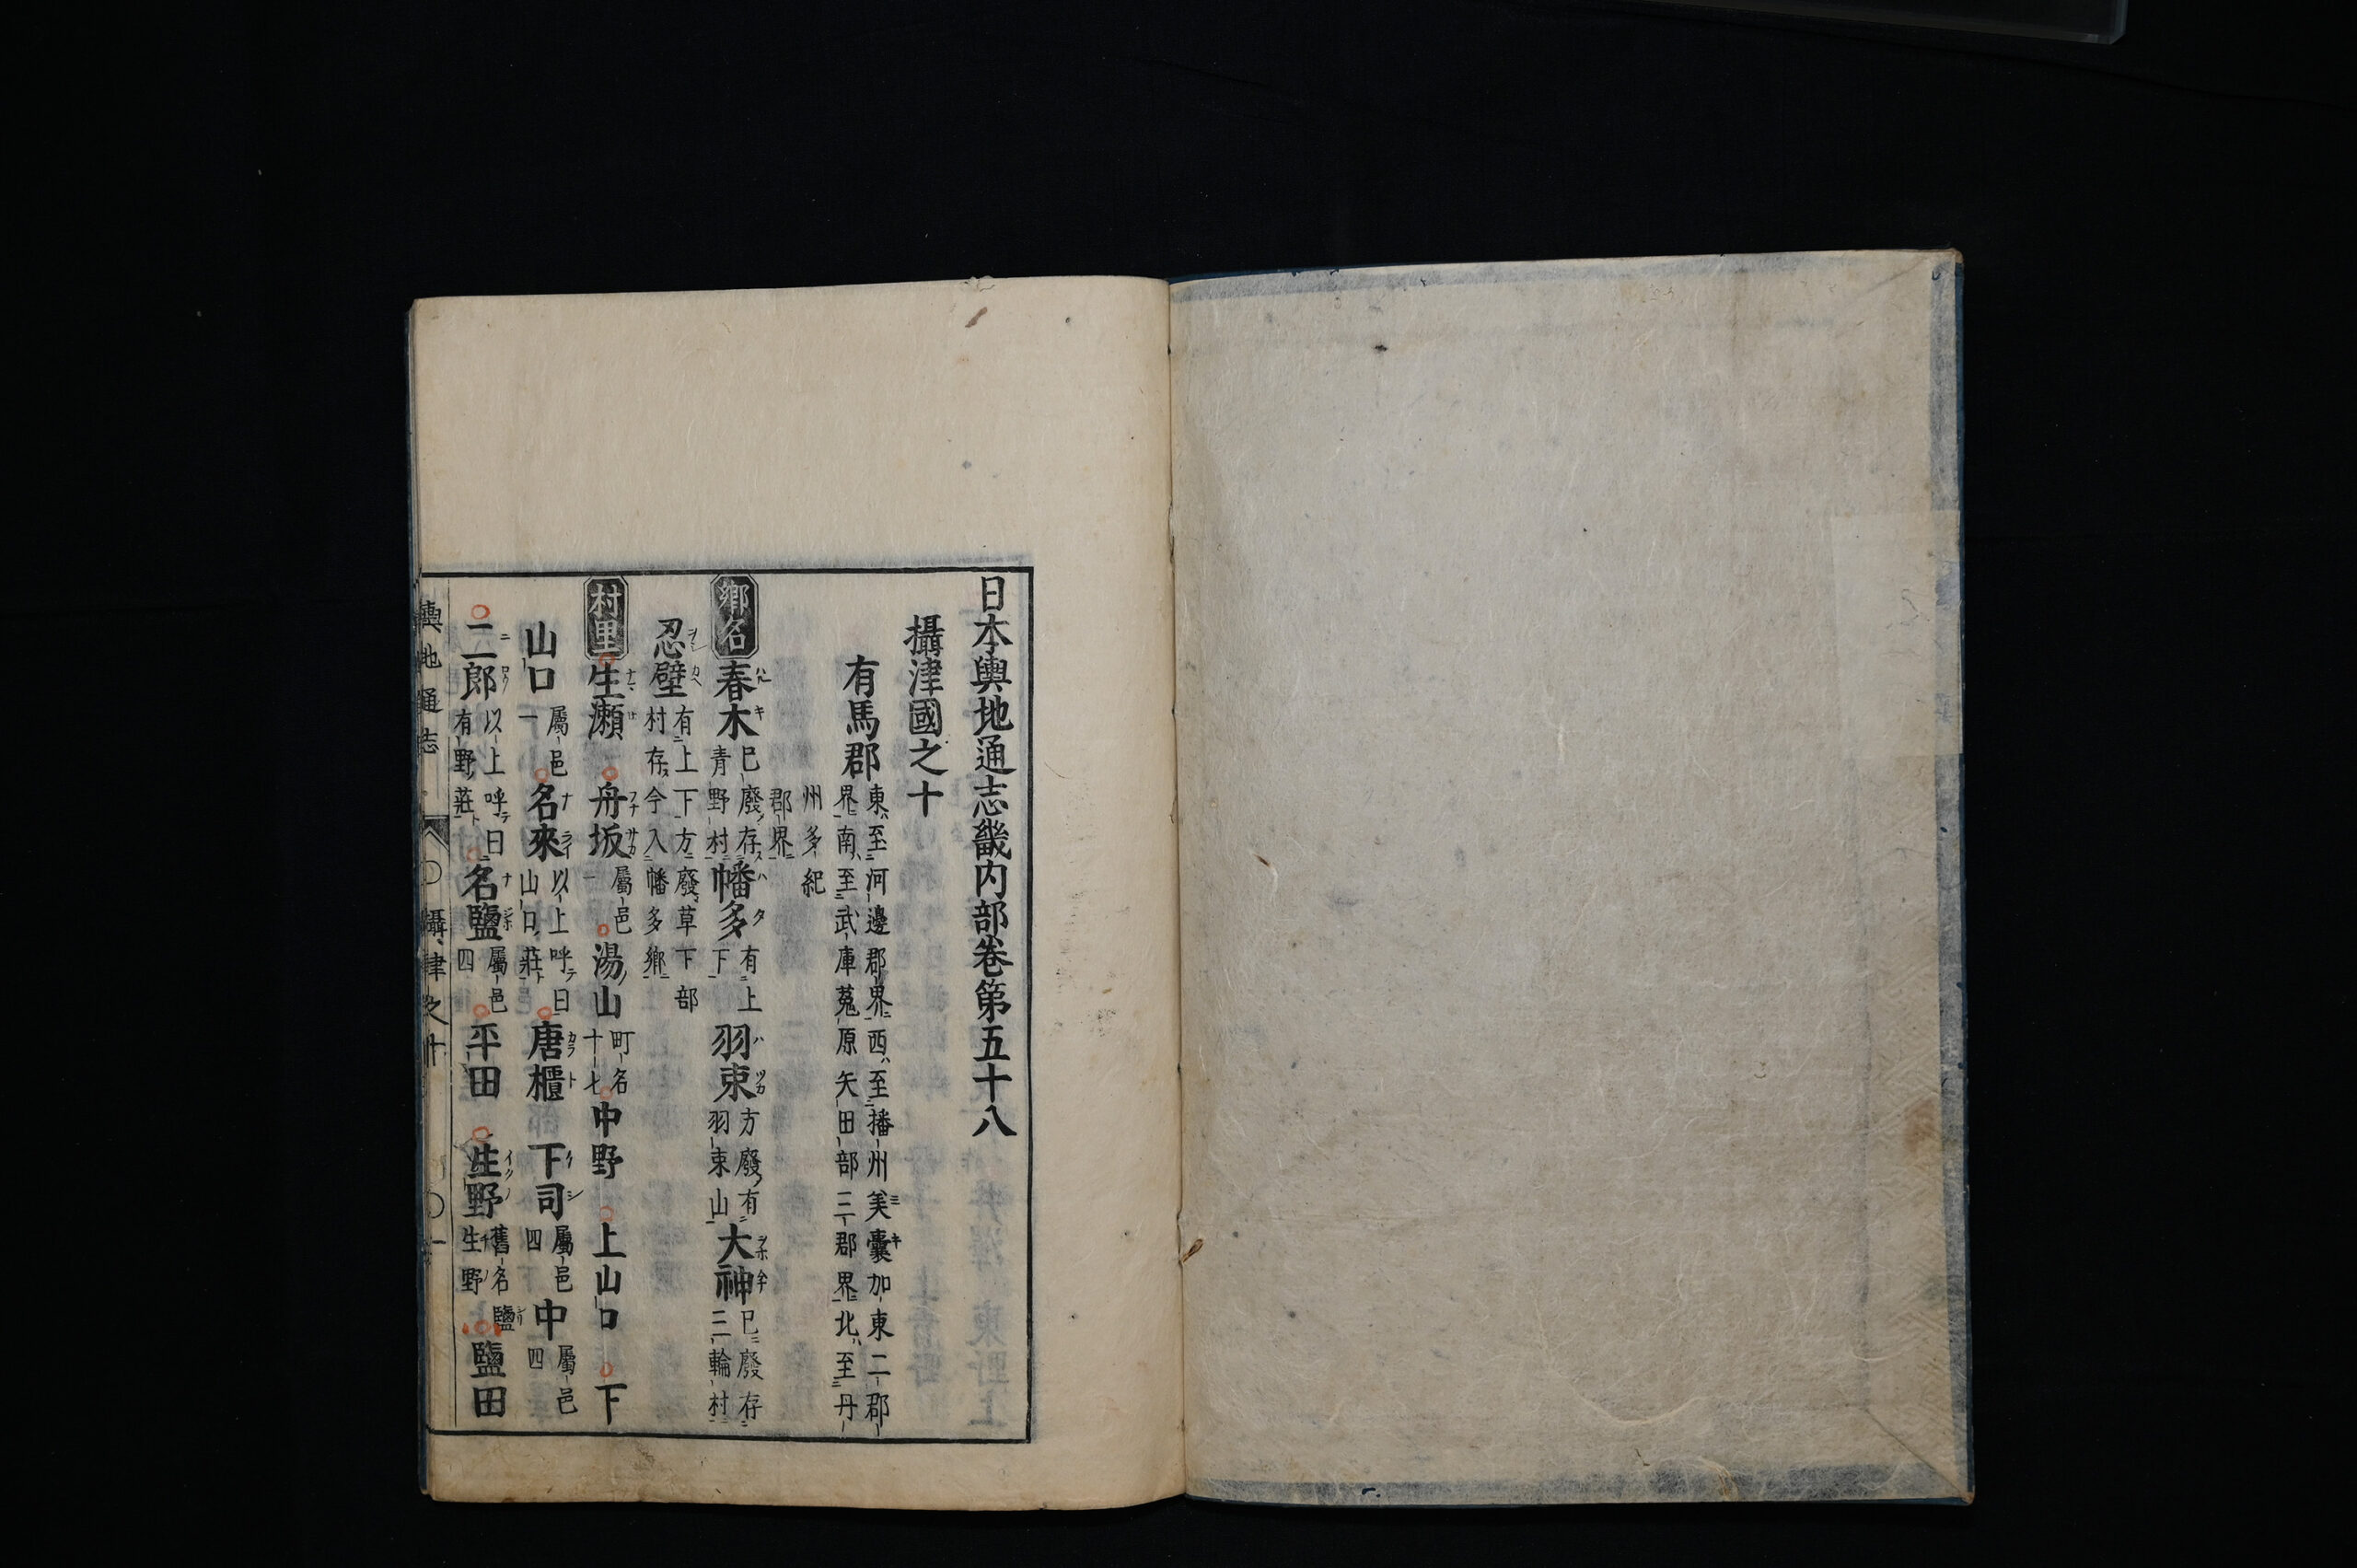 日本輿地通志畿内部巻第五十八
攝津國之十
有馬郡 東至河邊郡界西至播州美嚢加東二郡
界南至武庫菟原矢田部三郡界北至丹
州多紀
郡界
鄕名 春木 已廢存青野村 幡多 有上下 羽束 方廢有羽束山 大神 已廢存三輪村
忍壁 有上下方廢草下部村存今入幡多鄕
村里 生瀬 舟坂 屬邑一 湯山 町名十七 中野 上山口 下
山口 屬邑一 名來 以上呼曰山口莊 唐櫃 下司 屬邑四 中 屬邑四
二郎 以上呼曰有野莊 名鹽 屬邑四 平田 生野 舊名鹽生野 鹽田
輿地通志 攝津之十 一